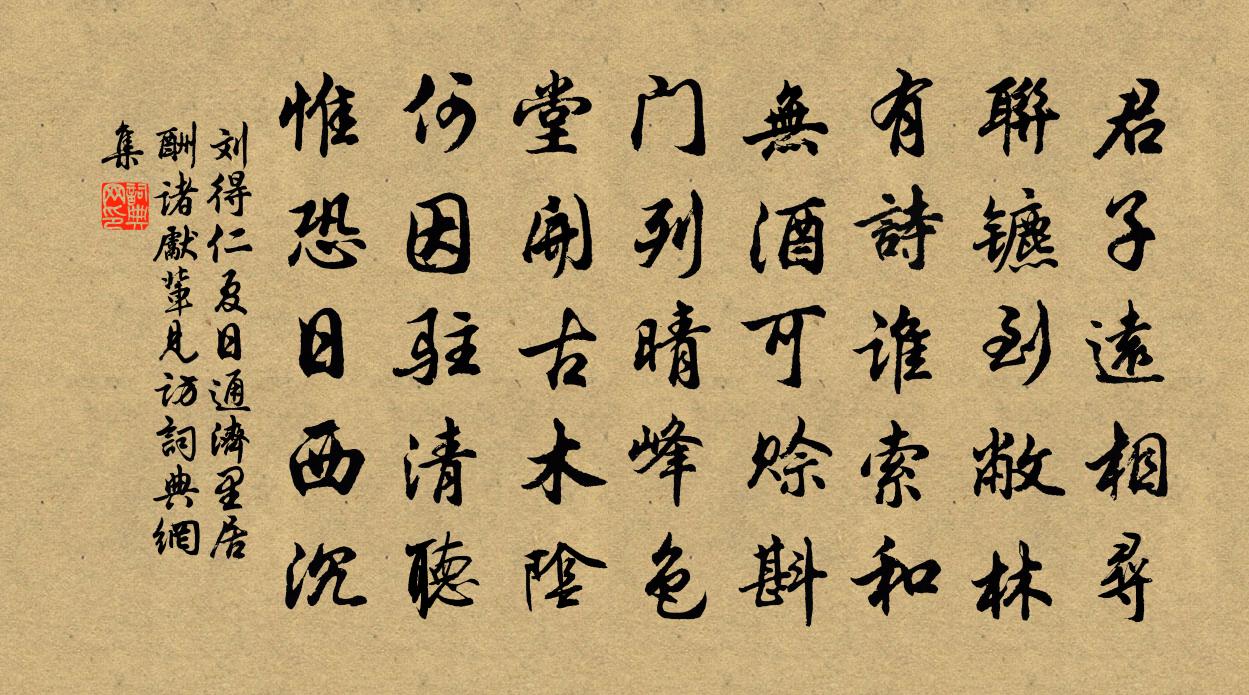 君子遠相尋
聯镳到敝林
有詩谁索和
無酒可赊斟
门列晴峰色
堂開古木陰
何因駐清聽
惟恐日西沉
刘得仁夏日通濟里居
酬诸獻輩見访詞典網
集
詞典
网印